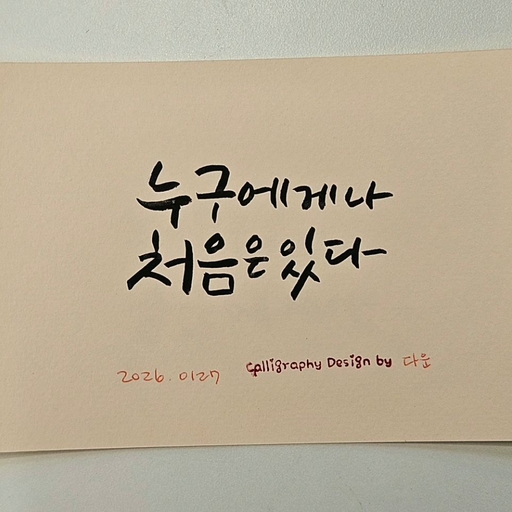 누구에게나
처음은 있다
2026. 0127 Calligraphy Design by 다운